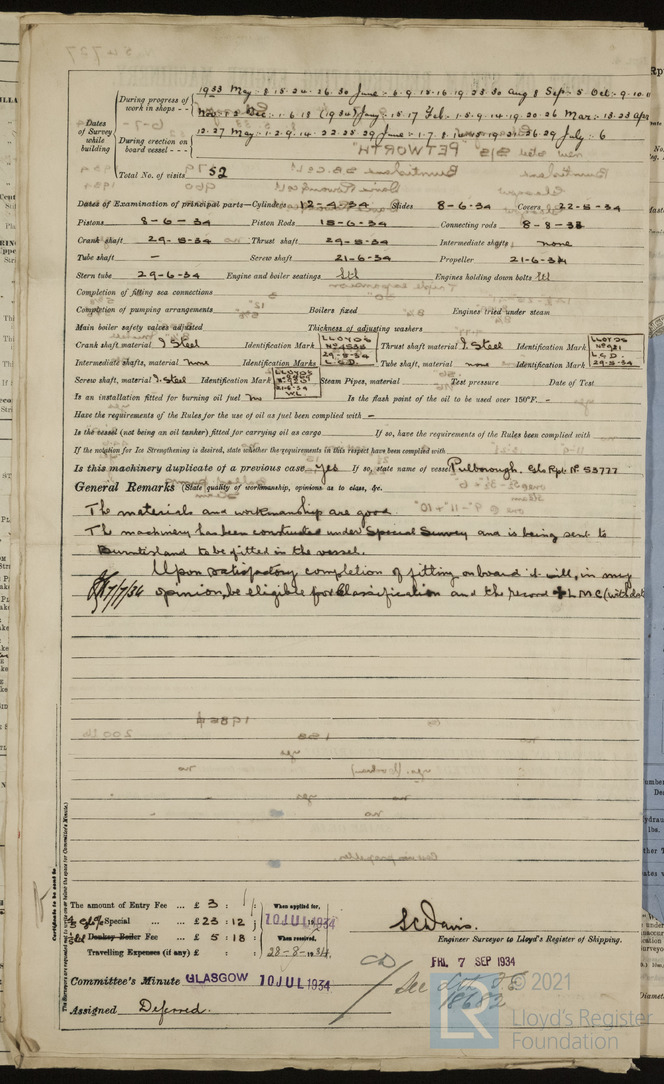 Dates of Survey while building
During progress of work in shops - -
1933 May: 8. 15. 24. 26. 30 June: 6. 9. 15. 16. 19. 23. 30 Aug 8 Sep: 5 Oct: 9. 10.
Nov: Dec: 1. 6. 13 (1934) Jany: 15. 17 Feb: 1. 5. 9. 14. 19. 20. 26 Mar: 13. 23 Apr
During erection on board vessel - - -
12. 27 May: 1. 2. 9. 14. 22. 25. 29 June: 1. 7. 8. 26. 29 July: 6
Total No. of visits 52
Dates of Examination of principal parts—Cylinders 12-4-34 Slides 8-6-34 Covers 22-5-34
Pistons 8-6-34 Piston Rods 15-6-34 Connecting rods 8-8-33
Crank shaft 29-5-34 Thrust shaft 29-5-34 Intermediate shafts none
Tube shaft - Screw shaft 21-6-34 Propeller 21-6-34
Stern tube 29-6-34 Engine and boiler seatings Engines holding down bolts
Completion of fitting sea connections
Completion of pumping arrangements Boilers fixed Engines tried under steam
Main boiler safety valves adjusted Thickness of adjusting washers
Crank shaft material I. Steel Identification Mark LLOYDS No 4538 29-5-34 L.S.D. Thrust shaft material I. Steel Identification Mark LLOYDS No 981 L.S.D. 29-5-34
Intermediate shafts, material none Identification Marks Tube shaft, material none Identification Mark
Screw shaft, material I. Steel Identification Mark LLOYDS 21-6-34 W.L. Steam Pipes, material Test pressure Date of Test
Is an installation fitted for burning oil fuel no Is the flash point of the oil to be used over 150°F. -
Have the requirements of the Rules for the use of oil as fuel been complied with -
Is the vessel (not being an oil tanker) fitted for carrying oil as cargo If so, have the requirements of the Rules been complied with
If the notation for Ice Strengthening is desired, state whether the requirements in this respect have been complied with
Is this machinery duplicate of a previous case Yes If so, state name of vessel Pulborough. Gls Rpt. No 53777
General Remarks (State quality of workmanship, opinions as to class, &c.
The materials and workmanship are good.
The machinery has been constructed under Special Survey and is being sent to
Burntisland to be fitted in the vessel.
Upon satisfactory completion of fitting onboard it will, in my
17/7/34 opinion, be eligible for Classification and the record ✠ L M C (with date
The amount of Entry Fee ... £ 3 : :
Special ... ... £ 23 : 12 :
Donkey Boiler Fee ... £ 5 : 18 :
Travelling Expenses (if any) £ : :
When applied for, 10 JUL 1934
When received, 28-8-1934
S C Davis.
Engineer Surveyor to Lloyd's Register of Shipping.
Committee's Minute GLASGOW 10 JUL 1934
FRI. 7 SEP 1934
Assigned Deferred.
Certificate to be sent to
The Surveyors are requested not to write on or below the space for Committee's Minute.
© 2021
Lloyd's Register
Foundation